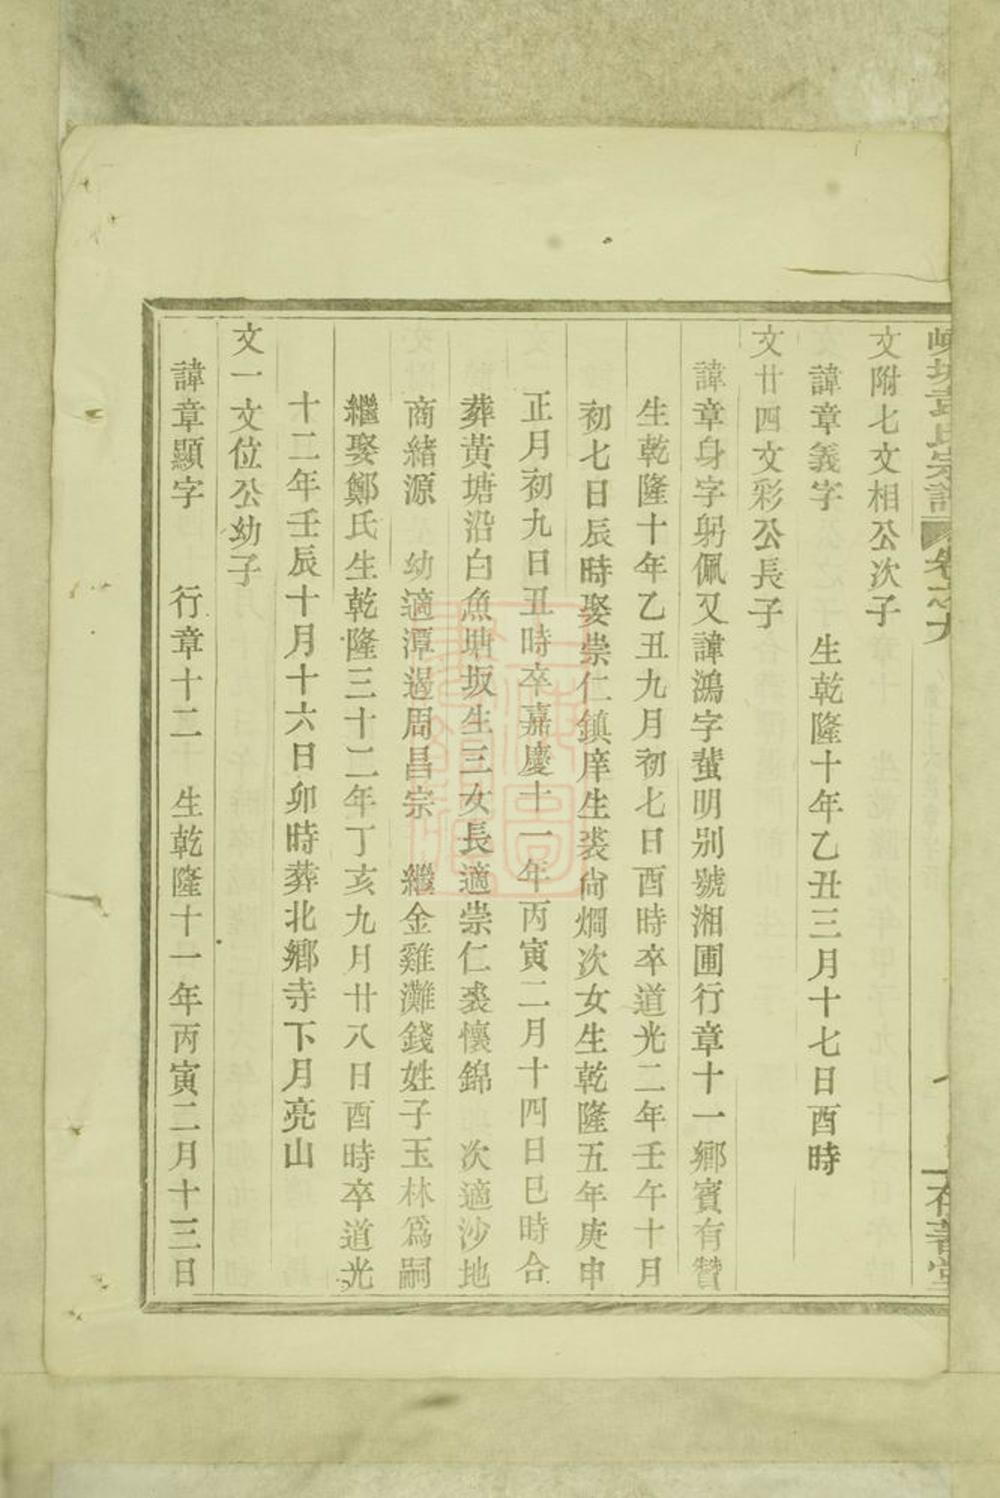 袁氏宗譜 卷之九 存著堂
文附七文相公次子
諱章義字 生乾隆十年乙丑三月十七日酉時
文廿四文彩公長子
諱章身字躬佩又諱鴻字蜚明別號湘圃行章十一鄉賓有贊
生乾隆十年乙丑九月初七日酉時卒道光二年壬午十月
初七日辰時娶崇仁鎮庠生裘尙烱次女生乾隆五年庚申
正月初九日丑時卒嘉慶十一年丙寅二月十四日巳時合
葬黃塘沿白魚塘坂生三女長適崇仁裘懷錦 次適沙地
商緒源 幼適潭遏周昌宗 繼金雞灘錢姓子玉林爲嗣
繼娶鄭氏生乾隆三十二年丁亥九月廿八日酉時卒道光
十二年壬辰十月十六日卯時葬北鄉寺下月亮山
文一文位公幼子
諱章顯字 行章十二 生乾隆十一年丙寅二月十三日